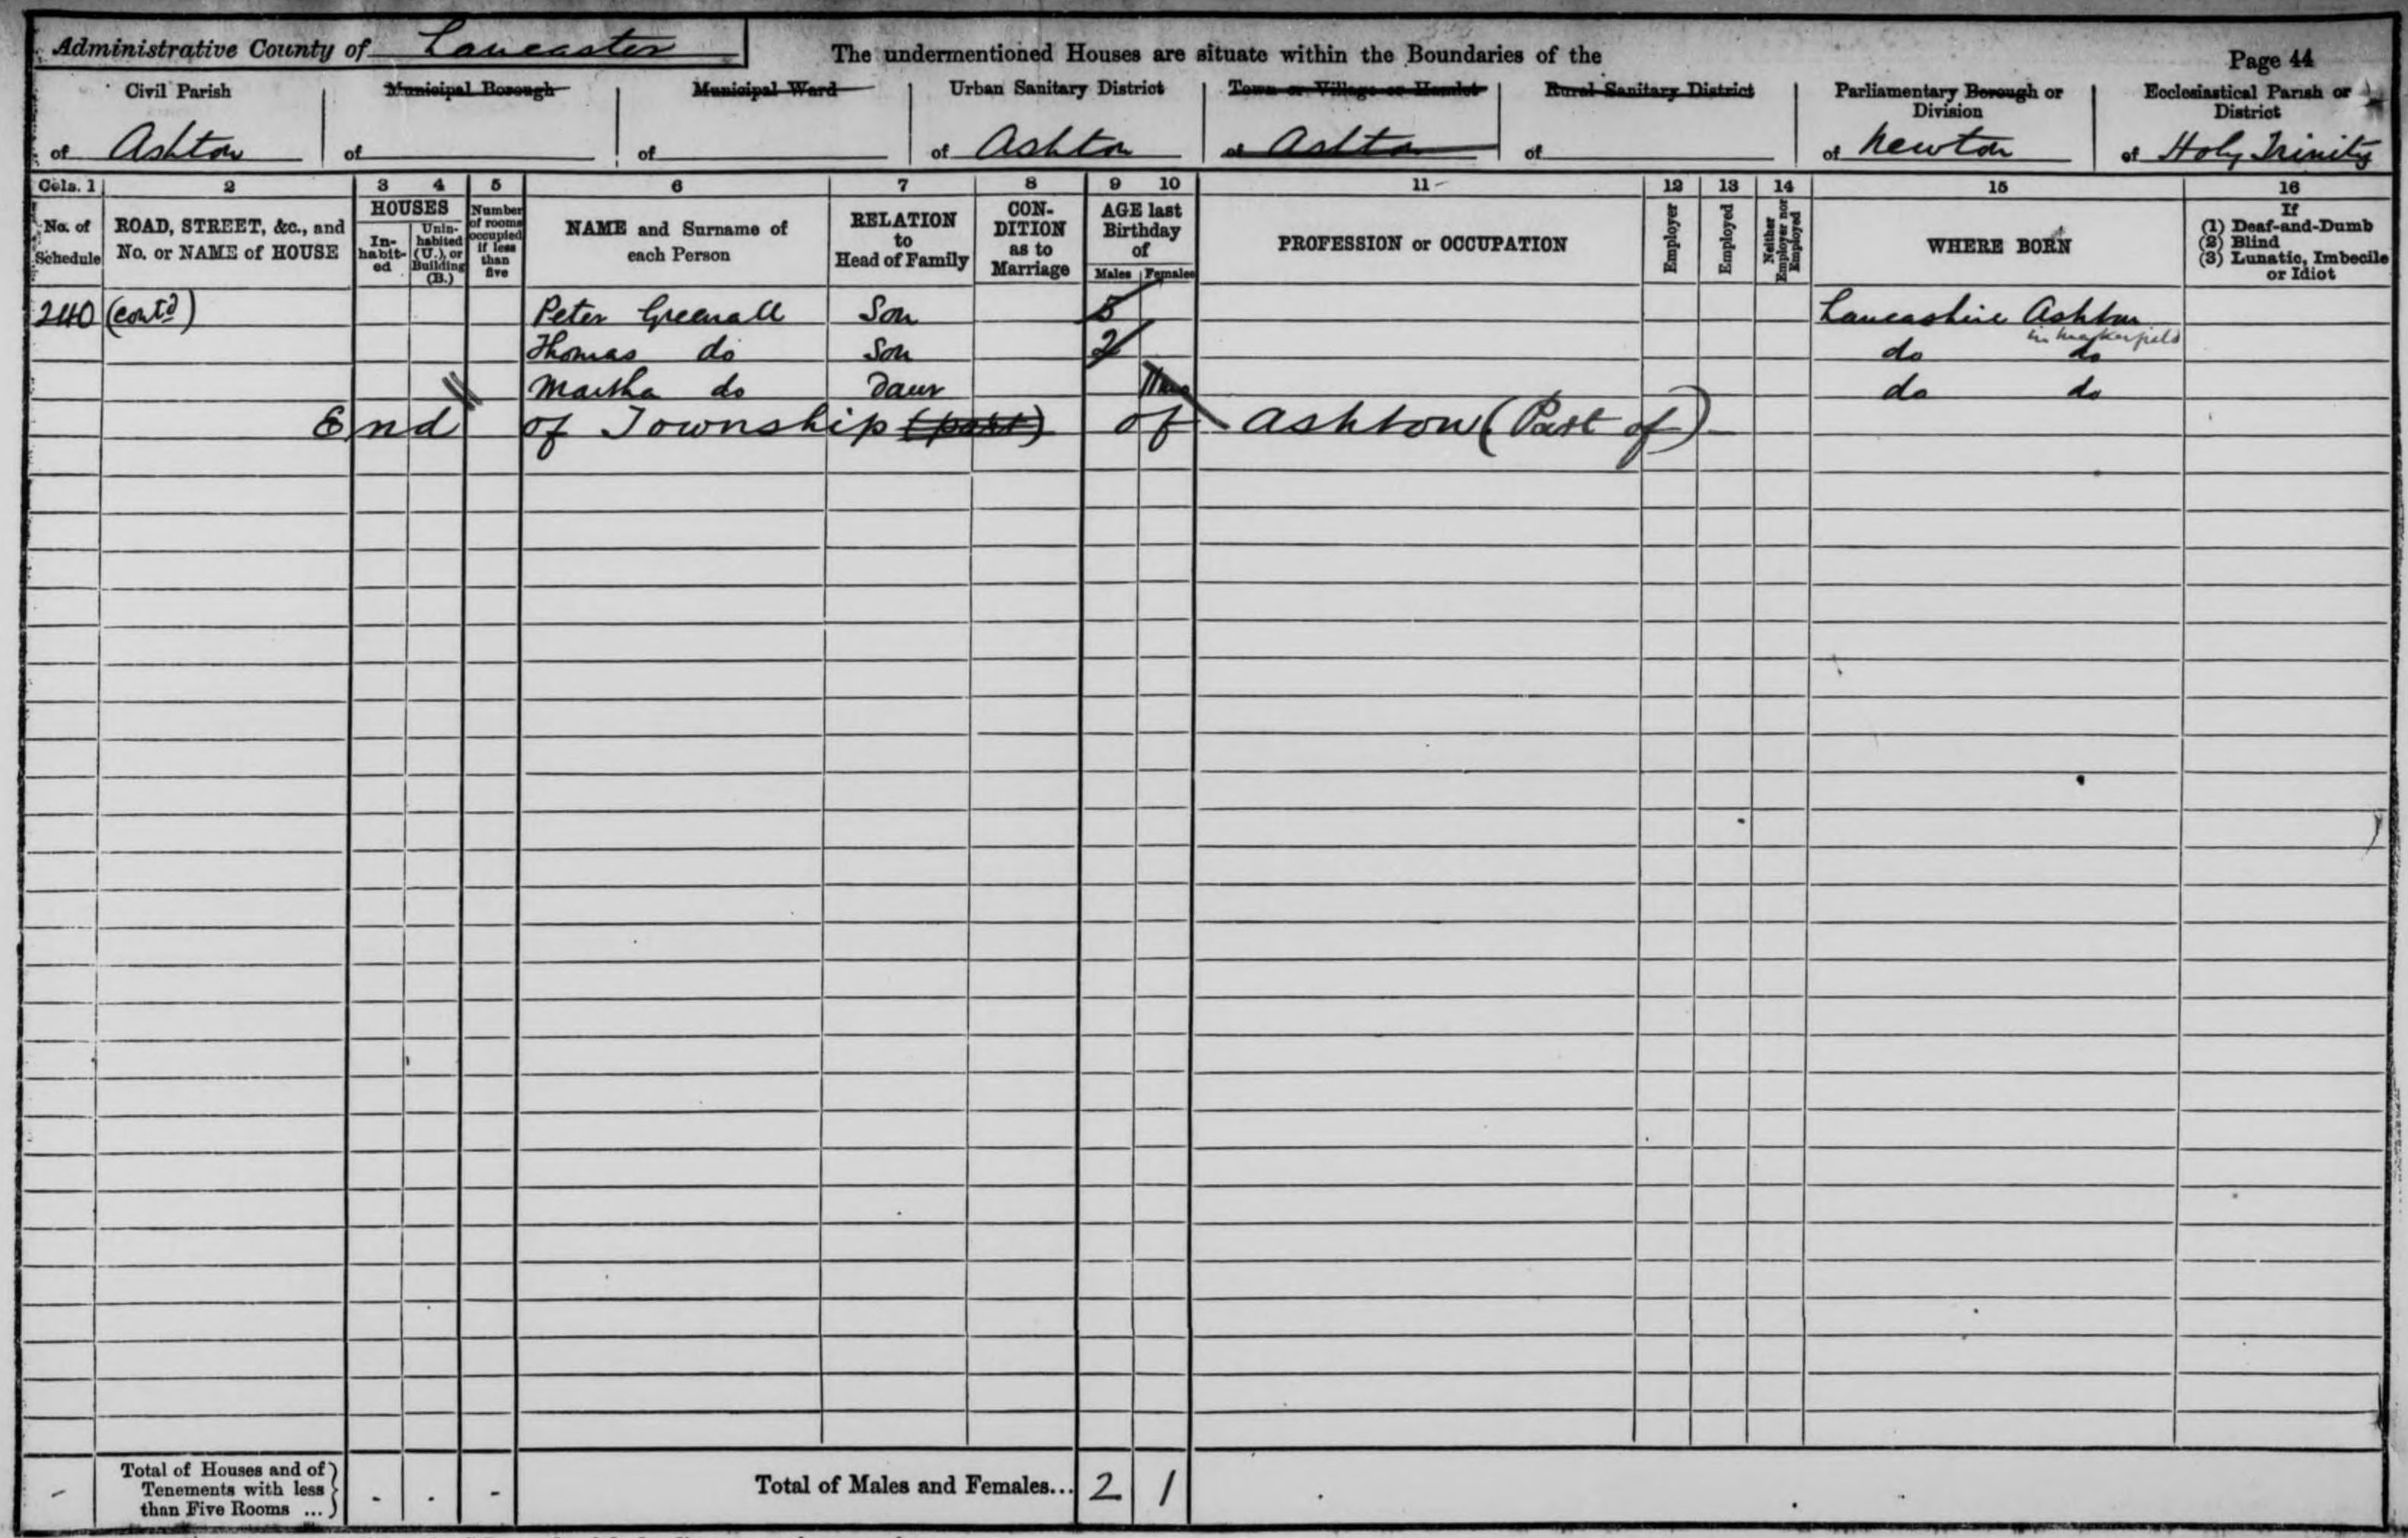 Administrative County of Lancaster
The undermentioned Houses are situate within the Boundaries of the
Page 44
Civil Parish
of Ashton
Municipal Borough
of
Municipal Ward
of
Urban Sanitary District
of Ashton
Town or Village or Hamlet
of Ashton
Rural Sanitary District
of
Parliamentary Borough or
Division
of Newton
Ecclesiastical Parish or
District
of Holy Trinity
Cols. 1 2 3 4 5 6 7 8 9 10 11 12 13 14 15 16
No. of
Schedule
ROAD, STREET, &c., and
No. or NAME of HOUSE
HOUSES
In-
habit-
ed
Unin-
habited
(U.), or
Building
(B.)
Number
of rooms
occupied
if less
than
five
NAME and Surname of
each Person
RELATION
to
Head of Family
CON-
DITION
as to
Marriage
AGE last
Birthday
of
Males Females
PROFESSION or OCCUPATION
Employer
Employed
Neither
Employer nor
Employed
WHERE BORN
If
(1) Deaf-and-Dumb
(2) Blind
(3) Lunatic, Imbecile
or Idiot
240 (contd) Peter Greenall Son 5 Lancashire Ashton
in Makerfield
Thomas do Son 2 do do
Martha do Daur do do
End of Township (part) of Ashton (Part of)
Total of Houses and of
Tenements with less
than Five Rooms ...
- - - -
Total of Males and Females... 2 1